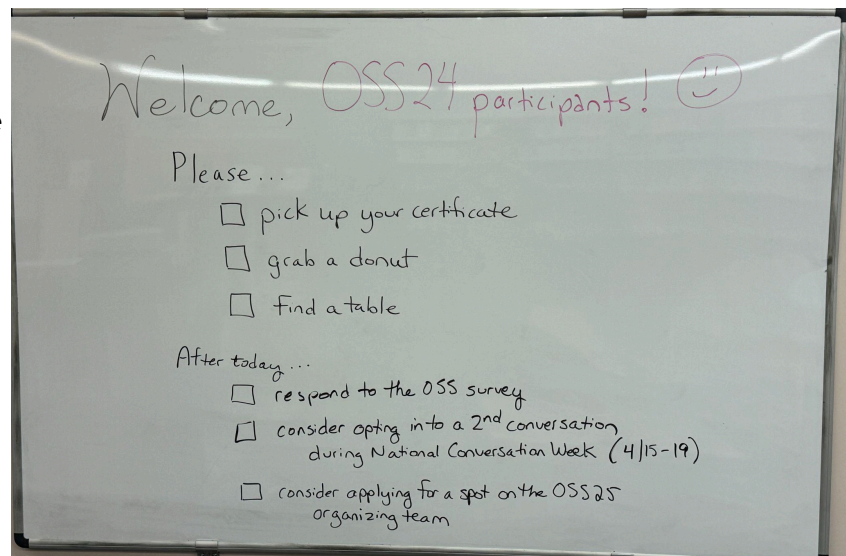 Welcome, OSS24 participants!
Please...
pick up your certificate
grab a donut
find a table
After today...
respond to the OSS survey
consider opting into a 2nd conversation
during National Conversation Week (4/15-19)
consider applying for a spot on the OSS25
organizing team